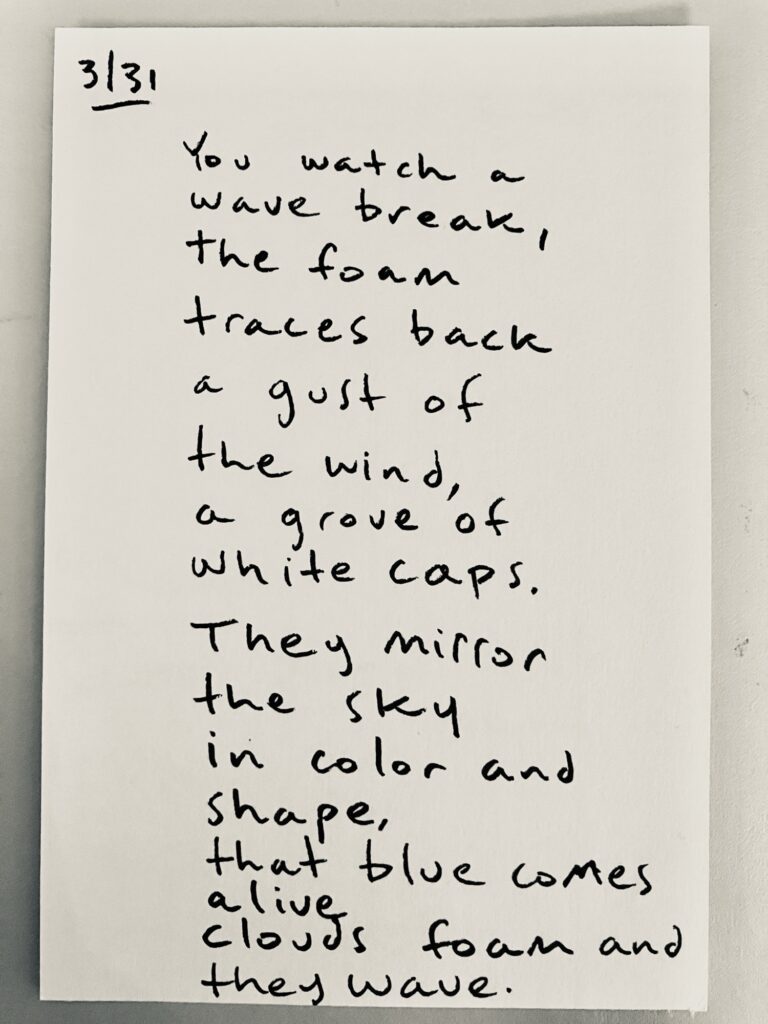 3/31
You watch a
wave break,
the foam
traces back
a gust of
the wind,
a grove of
white caps.
They mirror
the sky
in color and
shape,
that blue comes
alive
clouds foam and
they wave.